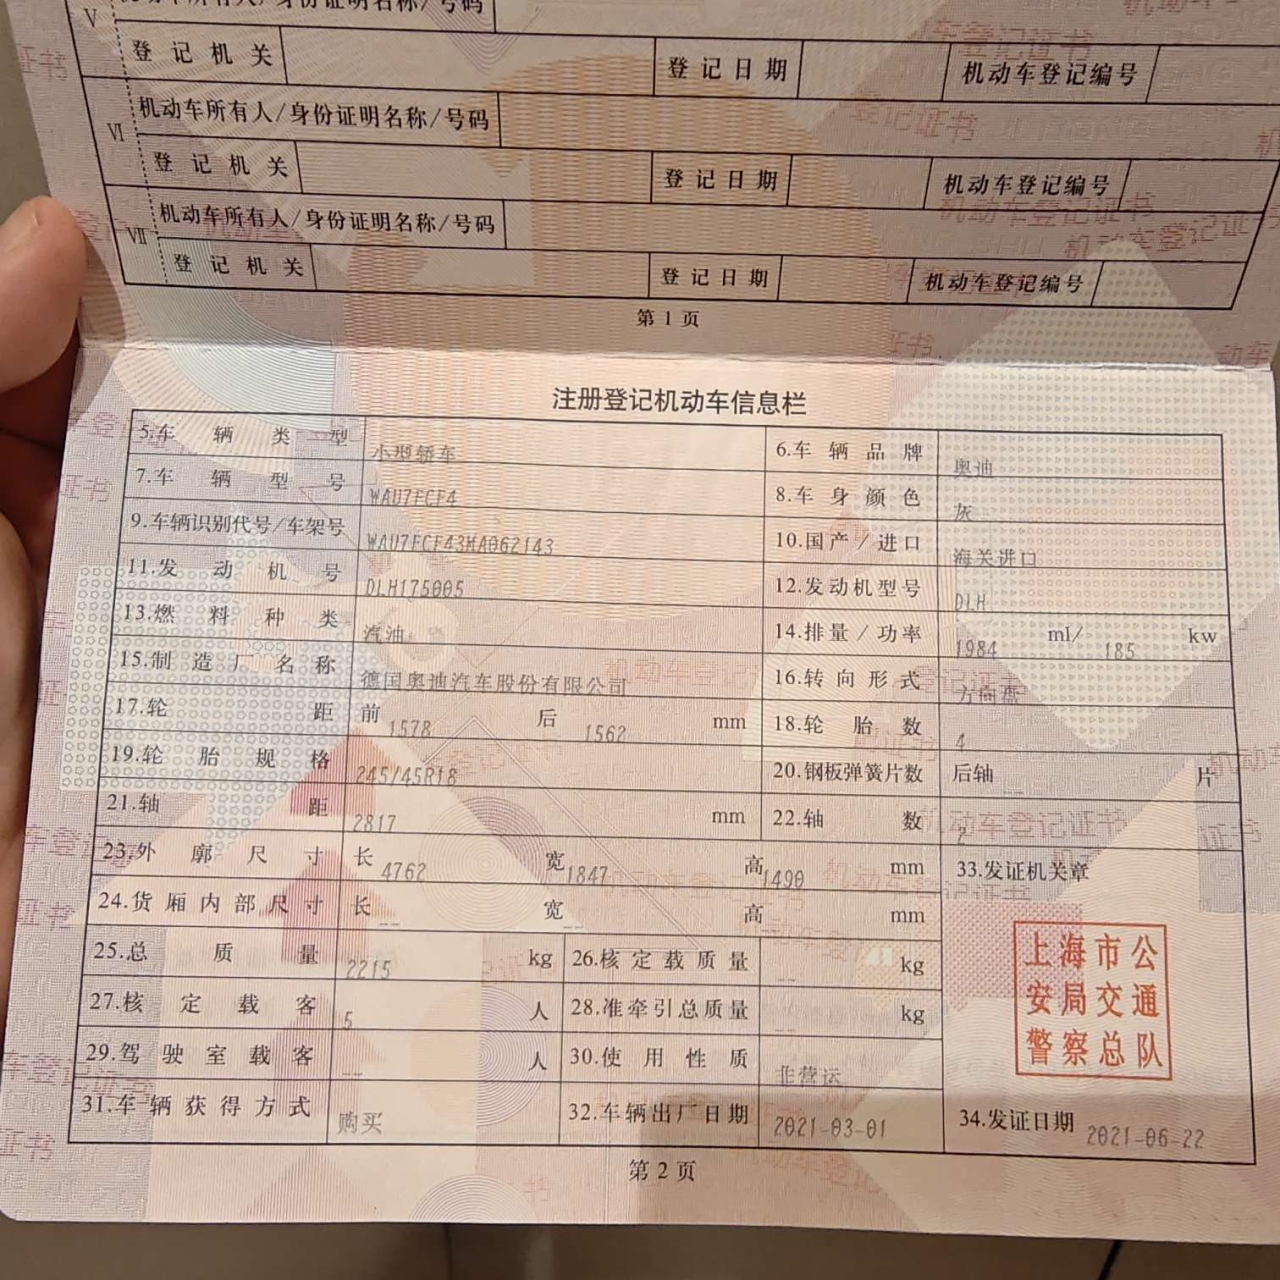 V 机动车所有人/身份证明名称/号码
登记机关 登记日期 机动车登记编号
VI 机动车所有人/身份证明名称/号码
登记机关 登记日期 机动车登记编号
VII 机动车所有人/身份证明名称/号码
登记机关 登记日期 机动车登记编号
第 1 页
注册登记机动车信息栏
5.车辆类型 小型轿车 6.车辆品牌 奥迪
7.车辆型号 WAU7FCF4 8.车身颜色 灰
9.车辆识别代号/车架号 WAU7FCF43MA062143 10.国产/进口 海关进口
11.发动机号 DLH175005 12.发动机型号 DLH
13.燃料种类 汽油 14.排量/功率 1984 ml/ 185 kw
15.制造厂名称 德国奥迪汽车股份有限公司 16.转向形式 方向盘
17.轮距 前 1578 后 1562 mm 18.轮胎数 4
19.轮胎规格 245/45R18 20.钢板弹簧片数 后轴 -- 片
21.轴距 2817 mm 22.轴数 2
23.外廓尺寸 长 4762 宽 1847 高 1490 mm 33.发证机关章
24.货厢内部尺寸 长 -- 宽 -- 高 -- mm
25.总质量 2215 kg 26.核定载质量 -- kg
27.核定载客 5 人 28.准牵引总质量 -- kg
29.驾驶室载客 -- 人 30.使用性质 非营运
31.车辆获得方式 购买 32.车辆出厂日期 2021-03-01 34.发证日期 2021-06-22
上海市公
安局交通
警察总队
第 2 页